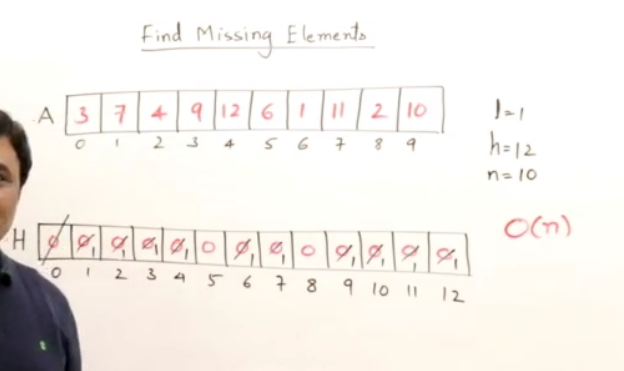 Find Missing Elements
A 3 7 4 9 12 6 1 11 2 10
0 1 2 3 4 5 6 7 8 9
l=1
h=12
n=10
O(n)
H 0 0 1 0 1 0 1 0 1 0 0 1 0 1 0 0 1 0 1 0 1 0 1
0 1 2 3 4 5 6 7 8 9 10 11 12